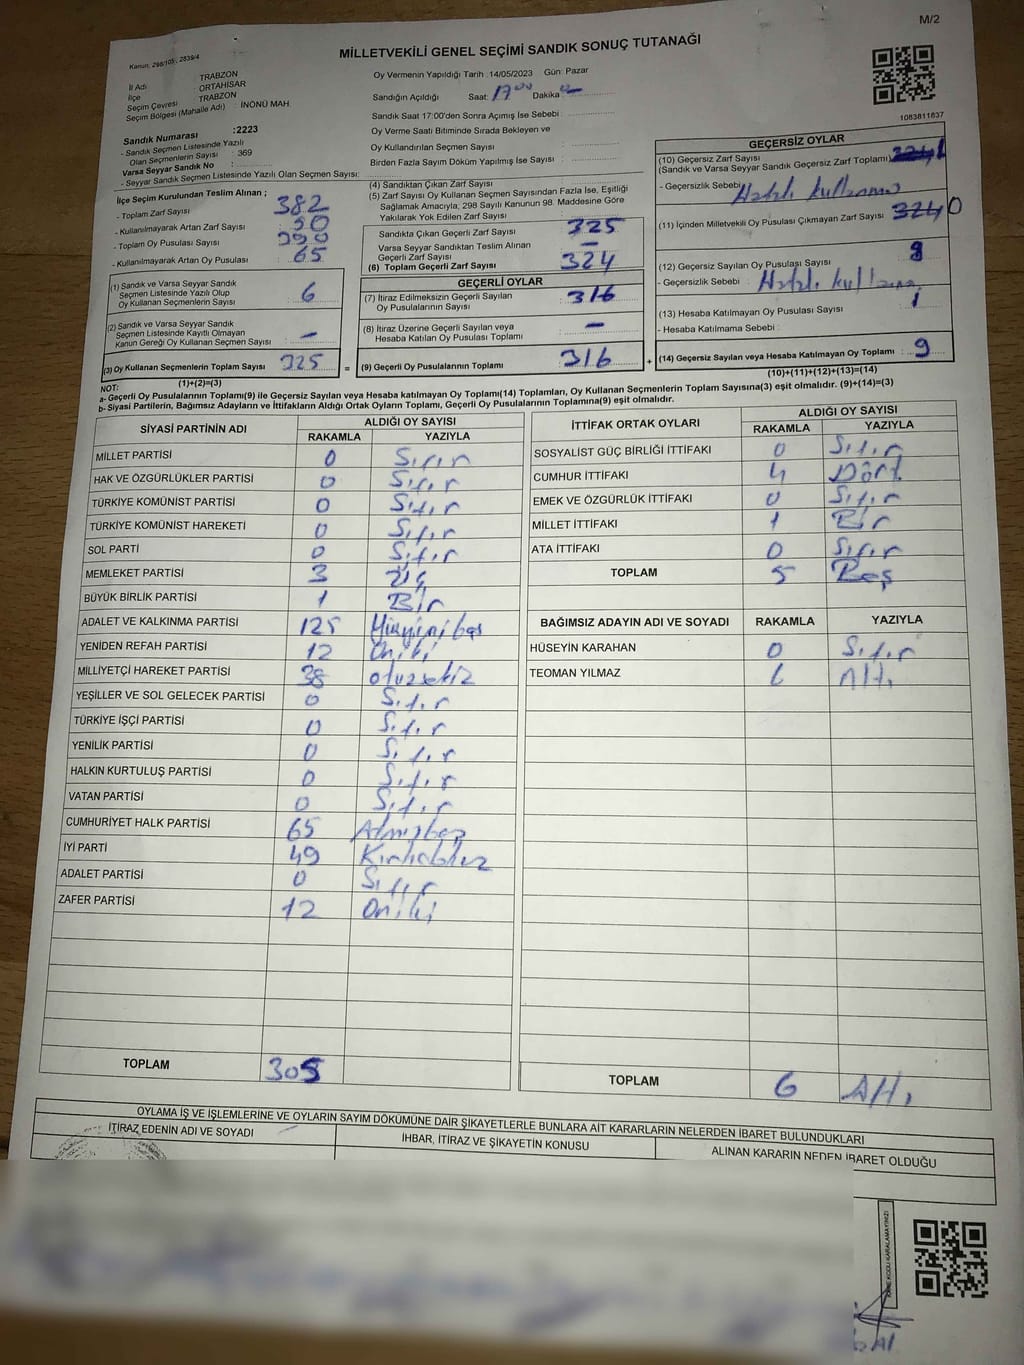 M/2
Kanun: 298/105 , 2839/4
MİLLETVEKİLİ GENEL SEÇİMİ SANDIK SONUÇ TUTANAĞI
İl Adı TRABZON
İlçe ORTAHİSAR
Seçim Çevresi TRABZON
Seçim Bölgesi (Mahalle Adı) : İNÖNÜ MAH.
Sandık Numarası :2223
- Sandık Seçmen Listesinde Yazılı
Olan Seçmenlerin Sayısı : 369
Varsa Seyyar Sandık No :
- Seyyar Sandık Seçmen Listesinde Yazılı Olan Seçmen Sayısı:
Oy Vermenin Yapıldığı Tarih :14/05/2023 Gün: Pazar
Sandığın Açıldığı Saat: 17 00 Dakika
Sandık Saat 17:00'den Sonra Açımış İse Sebebi :
Oy Verme Saati Bitiminde Sırada Bekleyen ve
Oy Kullandırılan Seçmen Sayısı :
Birden Fazla Sayım Döküm Yapılmış İse Sayısı :
1083811837
İlçe Seçim Kurulundan Teslim Alınan ;
- Toplam Zarf Sayısı : 382
- Kullanılmayarak Artan Zarf Sayısı :
- Toplam Oy Pusulası Sayısı :
- Kullanılmayarak Artan Oy Pusulası : 65
(1) Sandık ve Varsa Seyyar Sandık
Seçmen Listesinde Yazılı Olup
Oy Kullanan Seçmenlerin Sayısı : 6
(2) Sandık ve Varsa Seyyar Sandık
Seçmen Listesinde Kayıtlı Olmayan
Kanun Gereği Oy Kullanan Seçmen Sayısı : -
(3) Oy Kullanan Seçmenlerin Toplam Sayısı : 325
(1)+(2)=(3)
(4) Sandıktan Çıkan Zarf Sayısı :
(5) Zarf Sayısı Oy Kullanan Seçmen Sayısından Fazla İse, Eşitliği
Sağlamak Amacıyla; 298 Sayılı Kanunun 98. Maddesine Göre
Yakılarak Yok Edilen Zarf Sayısı :
Sandıkta Çıkan Geçerli Zarf Sayısı : 325
Varsa Seyyar Sandıktan Teslim Alınan
Geçerli Zarf Sayısı : -
(6) Toplam Geçerli Zarf Sayısı : 324
GEÇERLİ OYLAR
(7) İtiraz Edilmeksizin Geçerli Sayılan
Oy Pusulalarının Sayısı : 316
(8) İtiraz Üzerine Geçerli Sayılan veya
Hesaba Katılan Oy Pusulası Toplamı : -
= (9) Geçerli Oy Pusulalarının Toplamı : 316 +
GEÇERSİZ OYLAR
(10) Geçersiz Zarf Sayısı
(Sandık ve Varsa Seyyar Sandık Geçersiz Zarf Toplamı) :
- Geçersizlik Sebebi : Hatalı kullanma
(11) İçinden Milletvekili Oy Pusulası Çıkmayan Zarf Sayısı : 324 0
(12) Geçersiz Sayılan Oy Pusulası Sayısı :
- Geçersizlik Sebebi : Hatalı kullanma
(13) Hesaba Katılmayan Oy Pusulası Sayısı : 1
- Hesaba Katılmama Sebebi :
(14) Geçersiz Sayılan veya Hesaba Katılmayan Oy Toplamı : 9
(10)+(11)+(12)+(13)=(14)
NOT:
a- Geçerli Oy Pusulalarının Toplamı(9) ile Geçersiz Sayılan veya Hesaba katılmayan Oy Toplamı(14) Toplamları, Oy Kullanan Seçmenlerin Toplam Sayısına(3) eşit olmalıdır. (9)+(14)=(3)
b- Siyasi Partilerin, Bağımsız Adayların ve İttifakların Aldığı Ortak Oyların Toplamı, Geçerli Oy Pusulalarının Toplamına(9) eşit olmalıdır.
SİYASİ PARTİNİN ADI ALDIĞI OY SAYISI
RAKAMLA YAZIYLA
MİLLET PARTİSİ 0 Sıfır
HAK VE ÖZGÜRLÜKLER PARTİSİ 0 Sıfır
TÜRKİYE KOMÜNİST PARTİSİ 0 Sıfır
TÜRKİYE KOMÜNİST HAREKETİ 0 Sıfır
SOL PARTİ 0 Sıfır
MEMLEKET PARTİSİ 3 Üç
BÜYÜK BİRLİK PARTİSİ 1 Bir
ADALET VE KALKINMA PARTİSİ 125 Yüzyirmibeş
YENİDEN REFAH PARTİSİ 12 Oniki
MİLLİYETÇİ HAREKET PARTİSİ 38 otuzsekiz
YEŞİLLER VE SOL GELECEK PARTİSİ 0 Sıfır
TÜRKİYE İŞÇİ PARTİSİ 0 Sıfır
YENİLİK PARTİSİ 0 Sıfır
HALKIN KURTULUŞ PARTİSİ 0 Sıfır
VATAN PARTİSİ 0 Sıfır
CUMHURİYET HALK PARTİSİ 65 Atmışbeş
İYİ PARTİ 49 Kırkdokuz
ADALET PARTİSİ 0 Sıfır
ZAFER PARTİSİ 12 Oniki
TOPLAM 305
İTTİFAK ORTAK OYLARI ALDIĞI OY SAYISI
RAKAMLA YAZIYLA
SOSYALİST GÜÇ BİRLİĞİ İTTİFAKI 0 Sıfır
CUMHUR İTTİFAKI 4 Dört
EMEK VE ÖZGÜRLÜK İTTİFAKI 0 Sıfır
MİLLET İTTİFAKI 1 Bir
ATA İTTİFAKI 0 Sıfır
TOPLAM 5 Beş
BAĞIMSIZ ADAYIN ADI VE SOYADI RAKAMLA YAZIYLA
HÜSEYİN KARAHAN 0 Sıfır
TEOMAN YILMAZ 6 Altı
TOPLAM 6 Altı
OYLAMA İŞ VE İŞLEMLERİNE VE OYLARIN SAYIM DÖKÜMÜNE DAİR ŞİKAYETLERLE BUNLARA AİT KARARLARIN NELERDEN İBARET BULUNDUKLARI
İTİRAZ EDENİN ADI VE SOYADI İHBAR, İTİRAZ VE ŞİKAYETİN KONUSU ALINAN KARARIN NEDEN İBARET OLDUĞU
KARE KODU KARALAMAYINIZ!